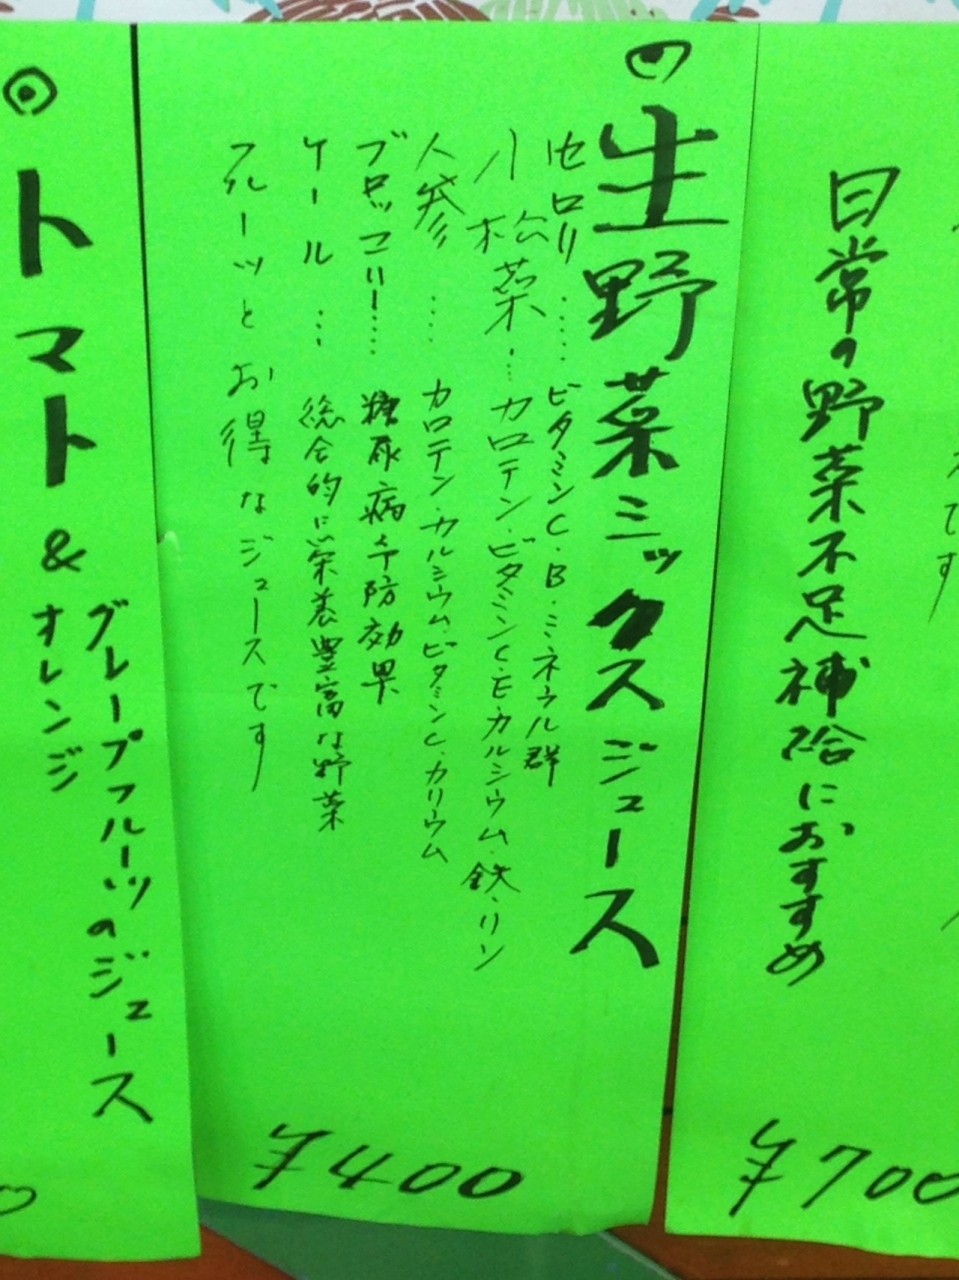 日常の野菜不足補給におすすめ
¥700
生野菜ミックスジュース
セロリ……ビタミンC・B・ミネラル群
小松菜…カロテン・ビタミンC・E・カルシウム・鉄・リン
人参…カロテン・カルシウム・ビタミンC・カリウム
ブロッコリー……糖尿病予防効果
ケール…総合的に栄養豊富な野菜
フルーツとお得なジュースです
¥400
◎トマト&
グレープフルーツのジュース
オレンジ